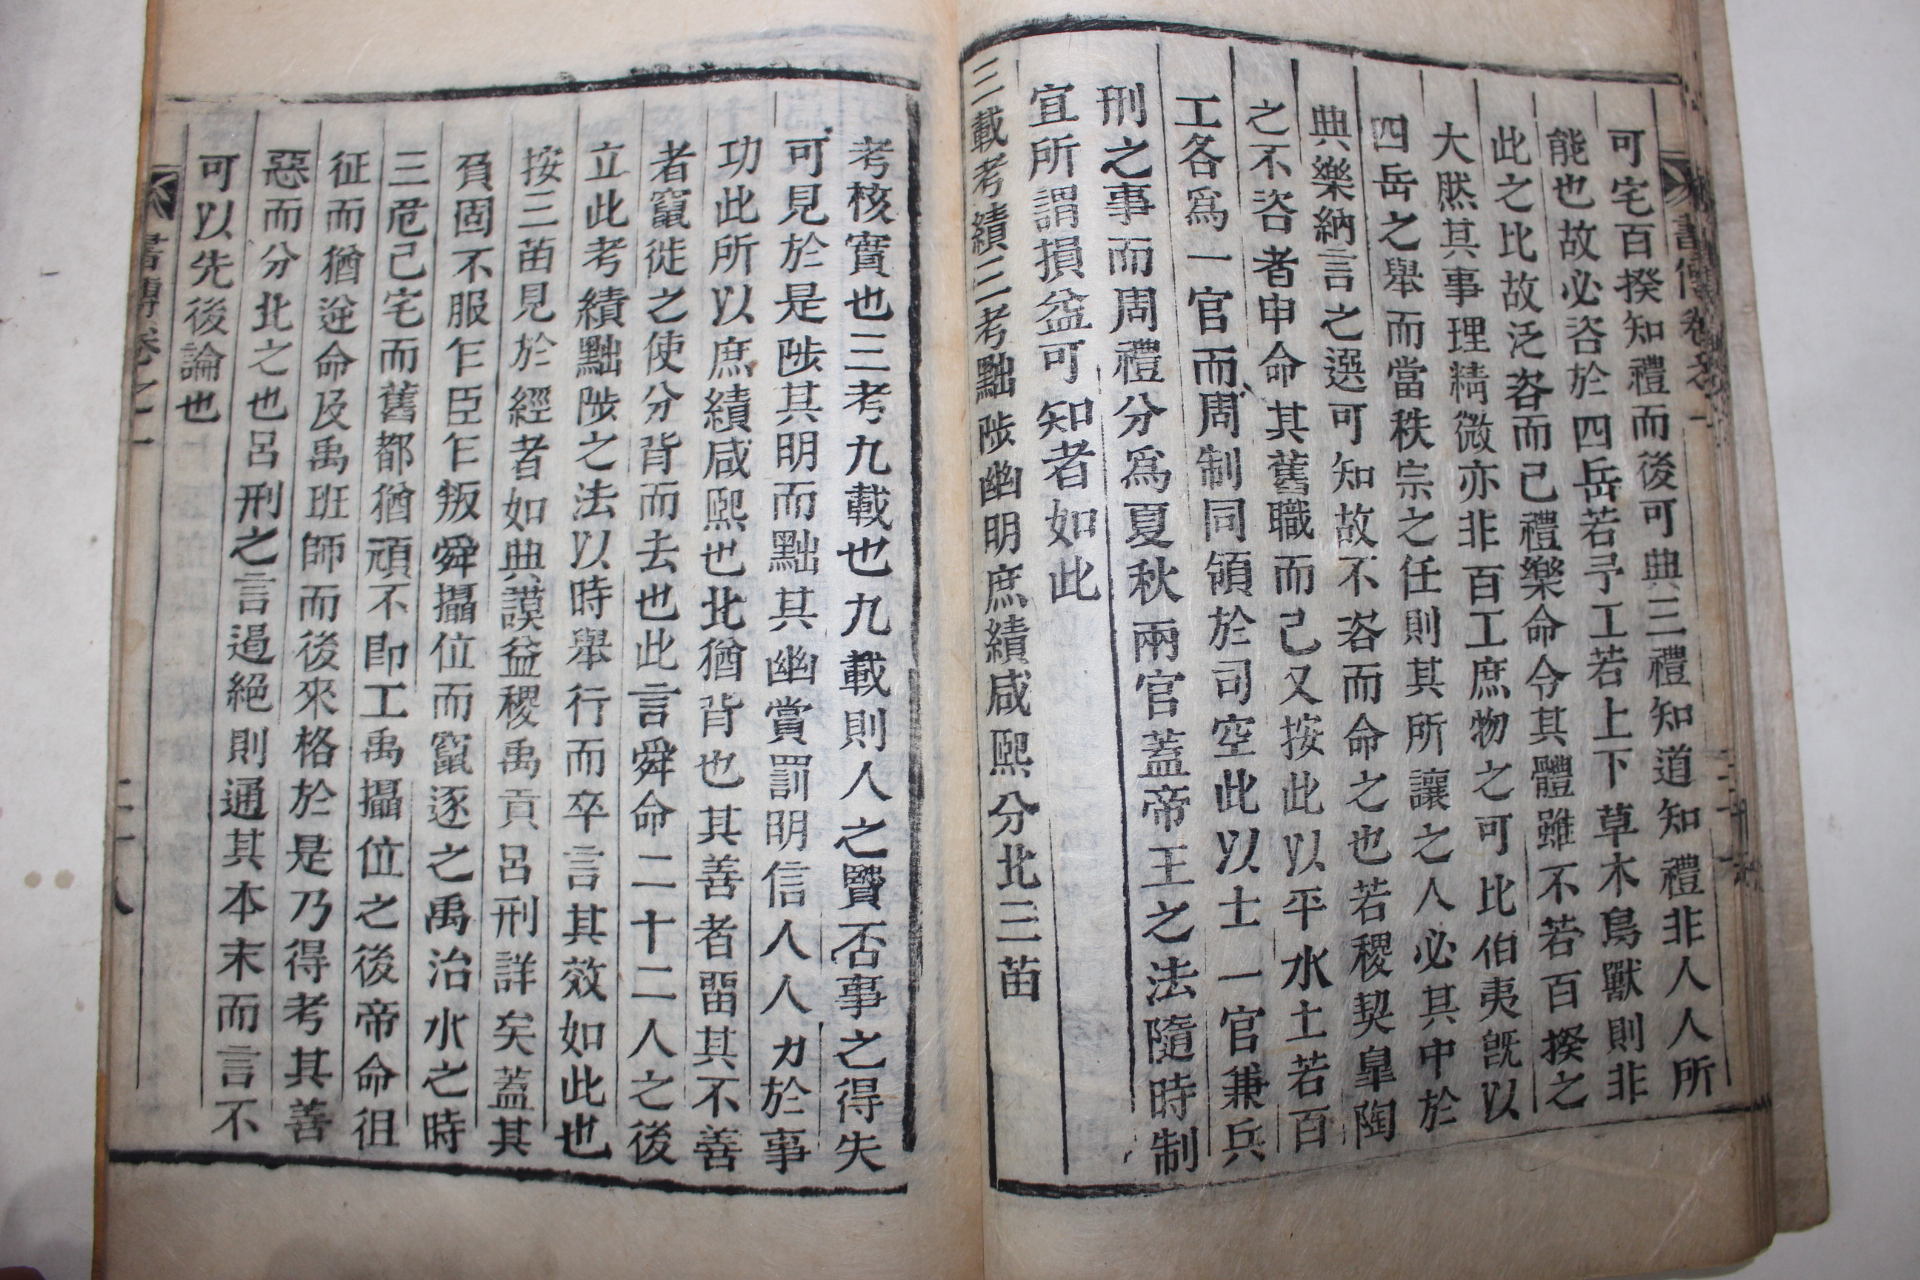 可宅百揆知禮而後可典三禮知道知禮非人人所
能也故必咨於四岳若予工若上下草木鳥獸則非
此之比故泛咨而已禮樂命令其體雖不若百揆之
大然其事理精微亦非百工庶物之可比伯夷旣以
四岳之舉而當秩宗之任則其所讓之人必其中於
典樂納言之選可知故不咨而命之也若稷契皐陶
之不咨者申命其舊職而已又按此以平水土若百
工各爲一官而周制同領於司空此以士一官兼兵
刑之事而周禮分爲夏秋兩官蓋帝王之法隨時制
宜所謂損益可知者如此
三載考績三考黜陟幽明庶績咸熙分北三苗
考核實也三考九載也九載則人之賢否事之得失
可見於是陟其明而黜其幽賞罰明信人人力於事
功此所以庶績咸熙也北猶背也其善者留其不善
者竄徙之使分背而去也此言舜命二十二人之後
立此考績黜陟之法以時舉行而卒言其效如此也
按三苗見於經者如典謨益稷禹貢呂刑詳矣蓋其
負固不服乍臣乍叛舜攝位而竄逐之禹治水之時
三危已宅而舊都猶頑不卽工禹攝位之後帝命徂
征而猶逆命及禹班師而後來格於是乃得考其善
惡而分北之也呂刑之言遏絶則通其本末而言不
可以先後論也
書傳卷之一
二十八